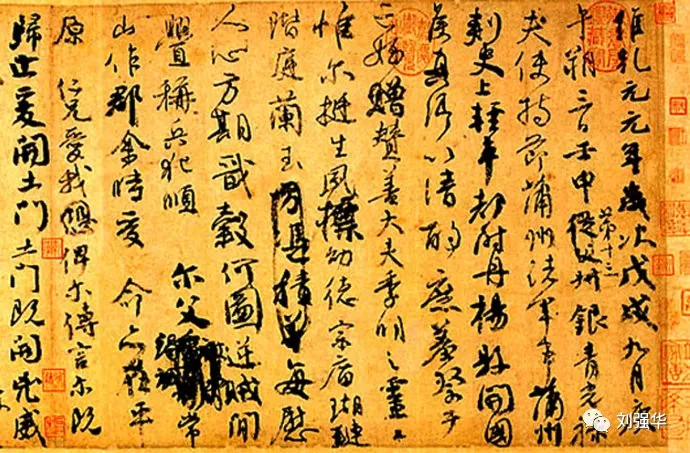 維乾元元年歲次戊戌九月庚
午朔三日壬申第十三從父叔銀青光祿
夫使持節蒲州諸軍事蒲州
刺史上輕車都尉丹楊縣開國
侯真卿以清酌庶羞祭于
亡姪贈贊善大夫季明之靈曰
惟尔挺生夙標幼德宗廟瑚璉
階庭蘭玉方憑積善每慰
人心方期戩穀何圖逆賊閒
釁稱兵犯順尔父竭誠常
山作郡余時受命亦在平
原仁兄愛我恐俾尔傳言尔既
歸止爰開土門土門既開兇威
刘强华